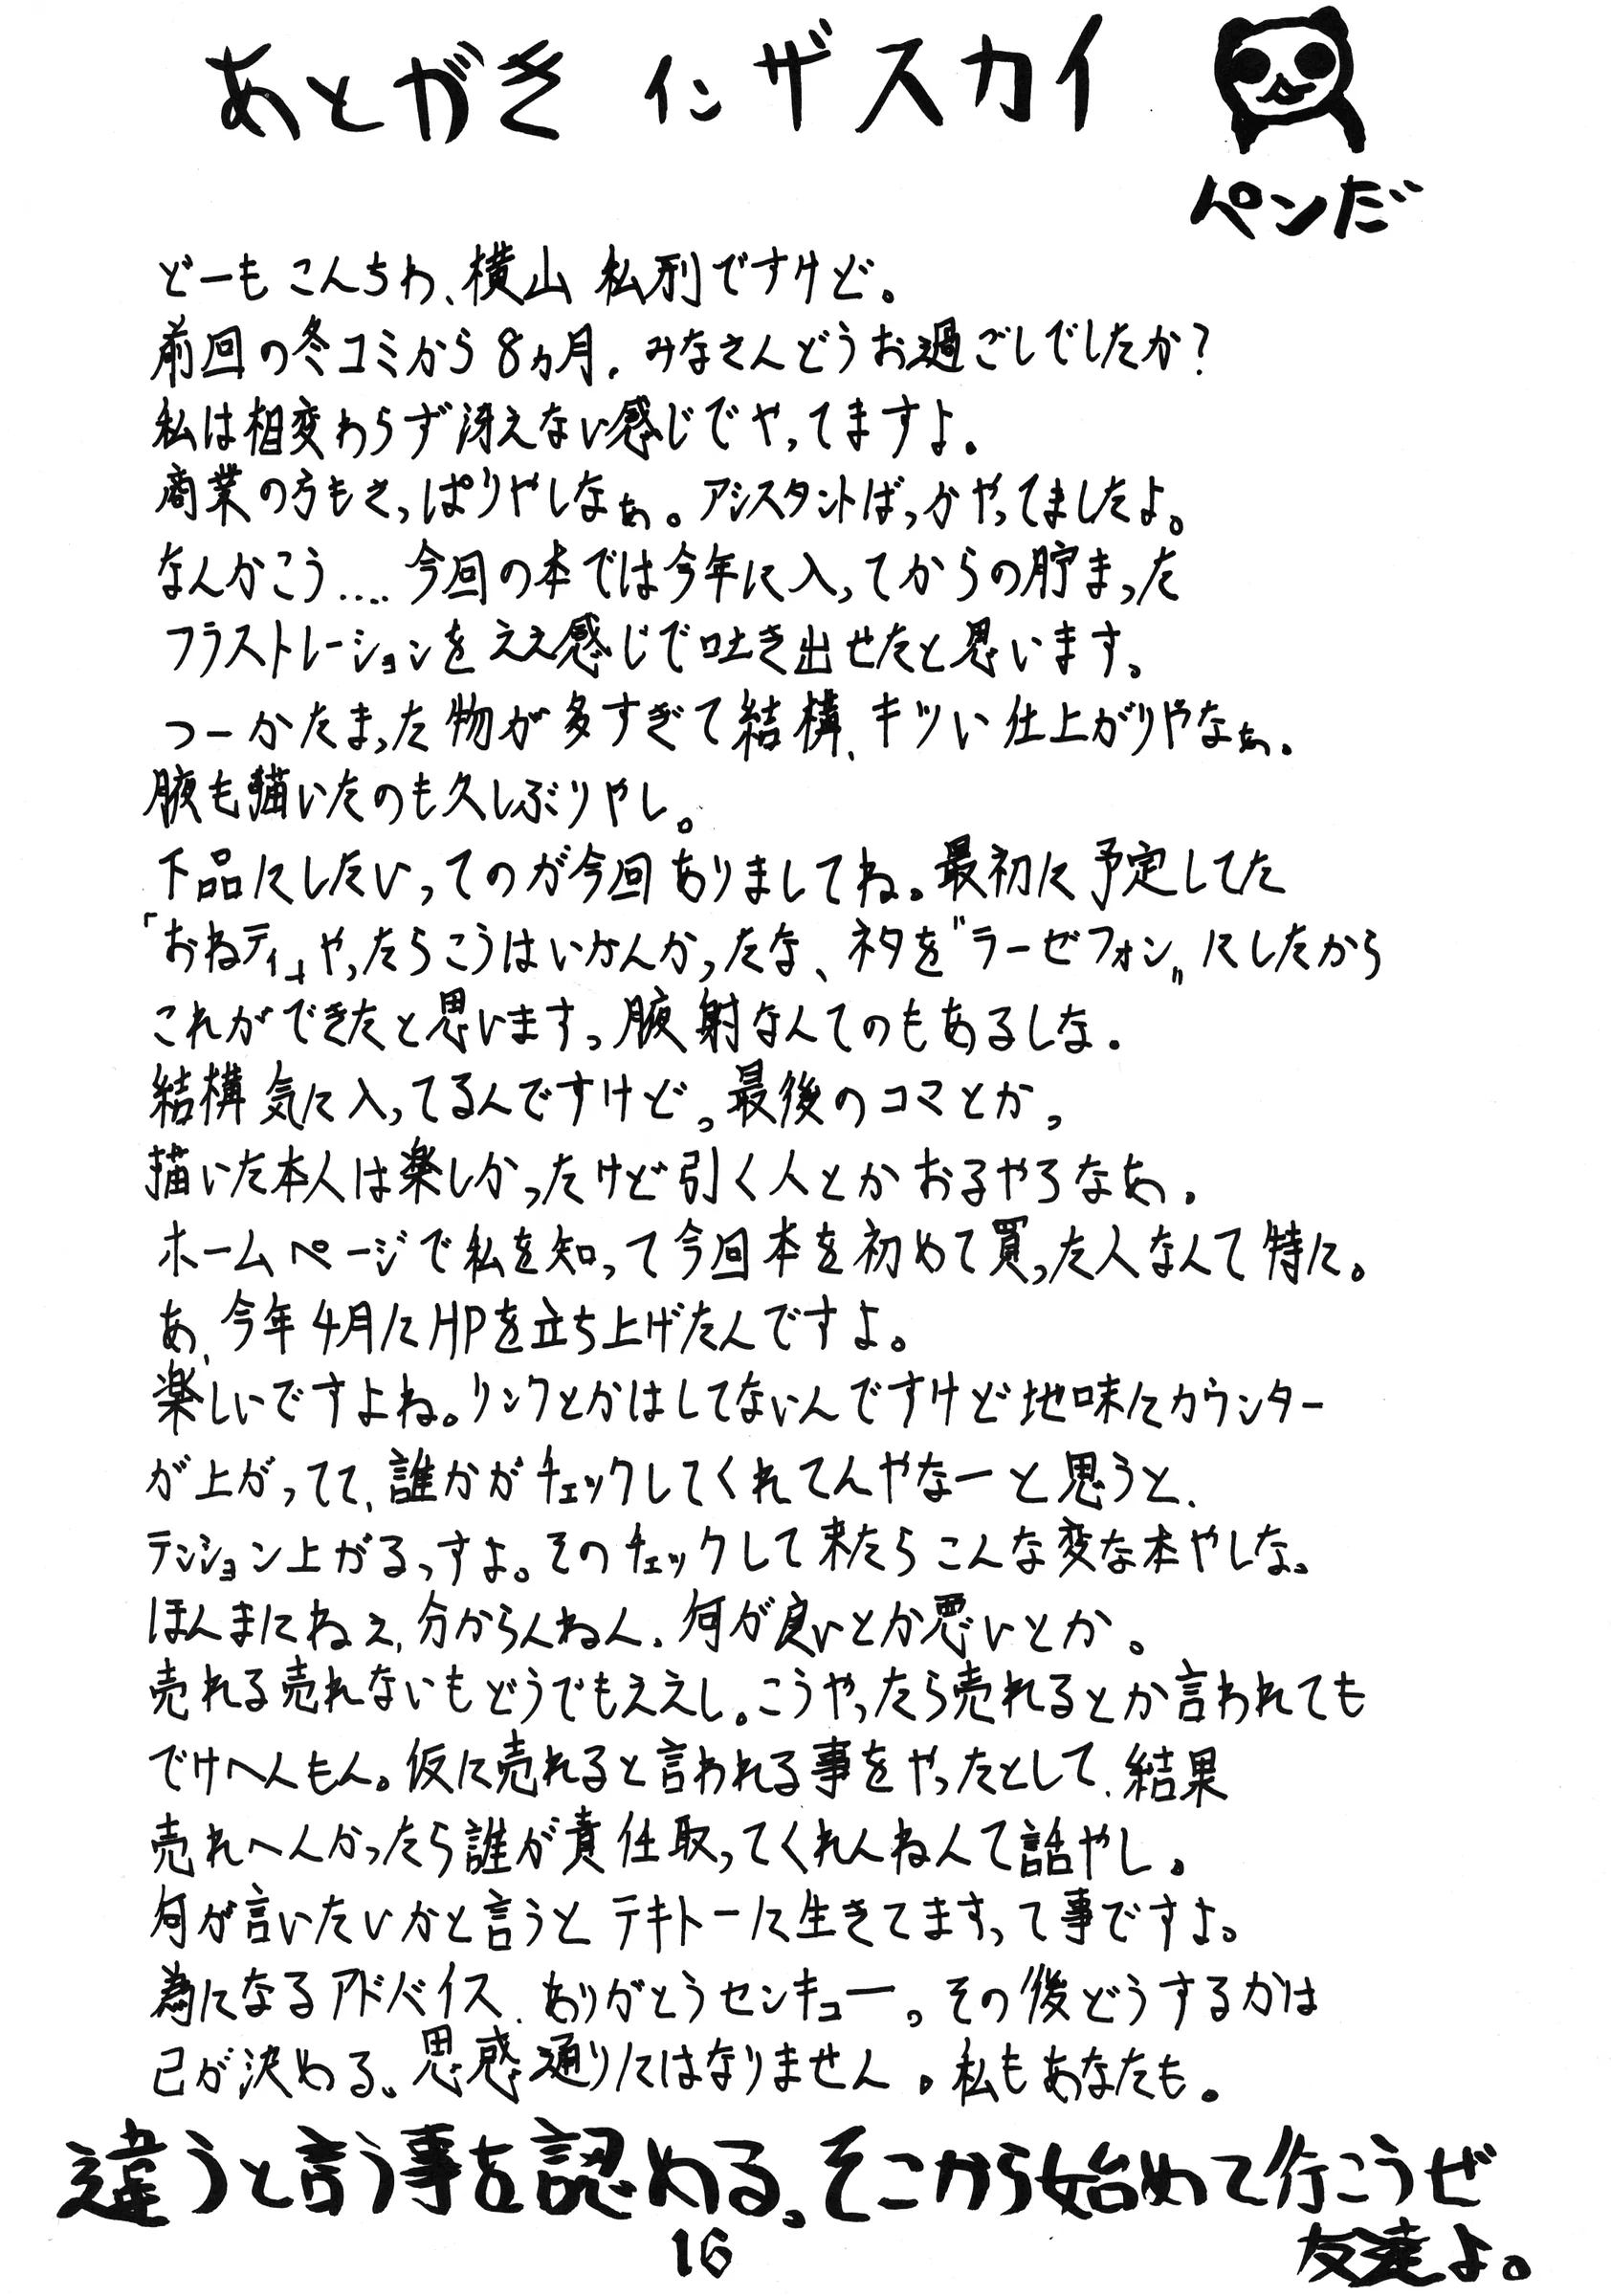 あとがき インザスカイ
ペンだ
どーもこんちわ、横山私刑ですけど。
前回の冬コミから8ヵ月、みなさんどうお過ごしでしたか?
私は相変わらず冴えない感じでやってますよ。
商業の方もさっぱりやしなぁ。アシスタントばっかやってましたよ。
なんかこう.... 今回の本では今年に入ってからの貯まった
フラストレーションをええ感じで吐き出せたと思います。
つーかたまった物が多すぎて結構、キツい仕上がりやなぁ。
腋も描いたのも久しぶりやし。
下品にしたいってのが今回ありましてね。最初に予定してた
「おねティ」やったらこうはいかんかったな、ネタを〝ラーゼフォン〟にしたから
これができたと思います。腋射なんてのもあるしな。
結構気に入ってるんですけど。最後のコマとか。
描いた本人は楽しかったけど引く人とかおるやろなあ。
ホームページで私を知って今回本を初めて買った人なんて特に。
あ、今年4月にHPを立ち上げたんですよ。
楽しいですよね。リンクとかはしてないんですけど地味にカウンター
が上がってて、誰かがチェックしてくれてんやなーと思うと、
テンション上がるっすよ。そのチェックして来たらこんな変な本やしな。
ほんまにねぇ、分からんねん、何が良いとか悪いとか。
売れる売れないもどうでもええし。こうやったら売れるとか言われても
でけへんもん。仮に売れると言われる事をやったとして、結果
売れへんかったら誰が責任取ってくれんねんて話やし。
何が言いたいかと言うとテキトーに生きてますって事ですよ。
為になるアドバイス、ありがとうセンキュー。その後どうするかは
己が決める。思惑通りにはなりません。私もあなたも。
違うと言う事を認める。そこから始めて行こうぜ
友達よ。
16